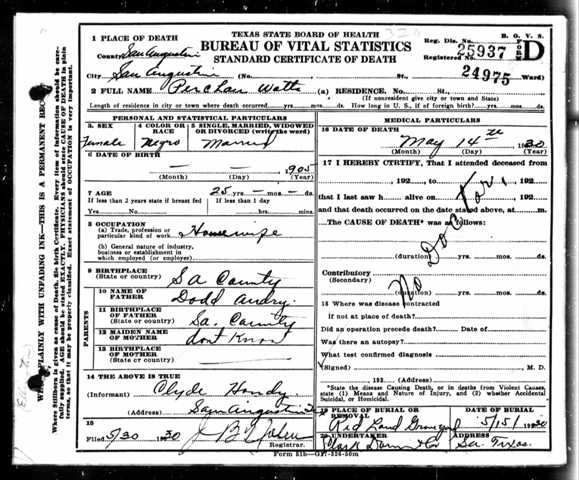 TEXAS STATE BOARD OF HEALTH
BUREAU OF VITAL STATISTICS
STANDARD CERTIFICATE OF DEATH
B. O. V. S.
FORM D
Reg. Dis. No. 25937
Registered No. 24975
1 PLACE OF DEATH
County San Augustine
City San Augustine No. St., Ward)
2 FULL NAME Watts (a) RESIDENCE. No. St.
(If nonresident give city or town and State)
Length of residence in city or town where death occurred yrs. mos. ds. How long in U. S., if of foreign birth? yrs. mos. ds.
PERSONAL AND STATISTICAL PARTICULARS
3. SEX
Female
4 COLOR OR RACE
Negro
5 SINGLE, MARRIED, WIDOWED OR DIVORCED (write the word)
Married
6 DATE OF BIRTH
— — 1905
(Month) (Day) (Year)
7 AGE 25 yrs — mos — ds.
If less than 2 years state if breast fed If less than 1 day
Yes No hrs. mins.
8 OCCUPATION
(a) Trade, profession or particular kind of work Housewife
(b) General nature of industry, business or establishment in which employed (or employer)
9 BIRTHPLACE
(State or country) Sa County
PARENTS
10 NAME OF FATHER Dodd
11 BIRTHPLACE OF FATHER
(State or country) Sa. County
12 MAIDEN NAME OF MOTHER dont know
13 BIRTHPLACE OF MOTHER
(State or country)
14 THE ABOVE IS TRUE
(Informant) Clyde
(Address) San Augustine
15
Filed 5/30 1930 J B
Registrar.
MEDICAL PARTICULARS
16 DATE OF DEATH
May 14th 1930
(Month) (Day) (Year)
17 I HEREBY CERTIFY, That I attended deceased from
192 to 192
that I last saw h alive on 192
and that death occurred on the date stated above, at m.
The CAUSE OF DEATH* was as follows:
No Doctor
(duration) yrs. mos. ds.
Contributory
(Secondary)
(duration) yrs. mos. ds.
18 Where was disease contracted
If not at place of death?
Did an operation precede death? Date of
Was there an autopsy?
What test confirmed diagnosis
(Signed) M. D.
192 (Address)
*State the disease Causing Death, or in deaths from Violent Causes, state (1) Means and Nature of Injury, and (2) whether Accidental Suicidal, or Homicidal.
19 PLACE OF BURIAL OR REMOVAL
Red Land
DATE OF BURIAL
5/15/1930
20 UNDERTAKER
Clark
ADDRESS
Sa. Texas.
Form 51b—